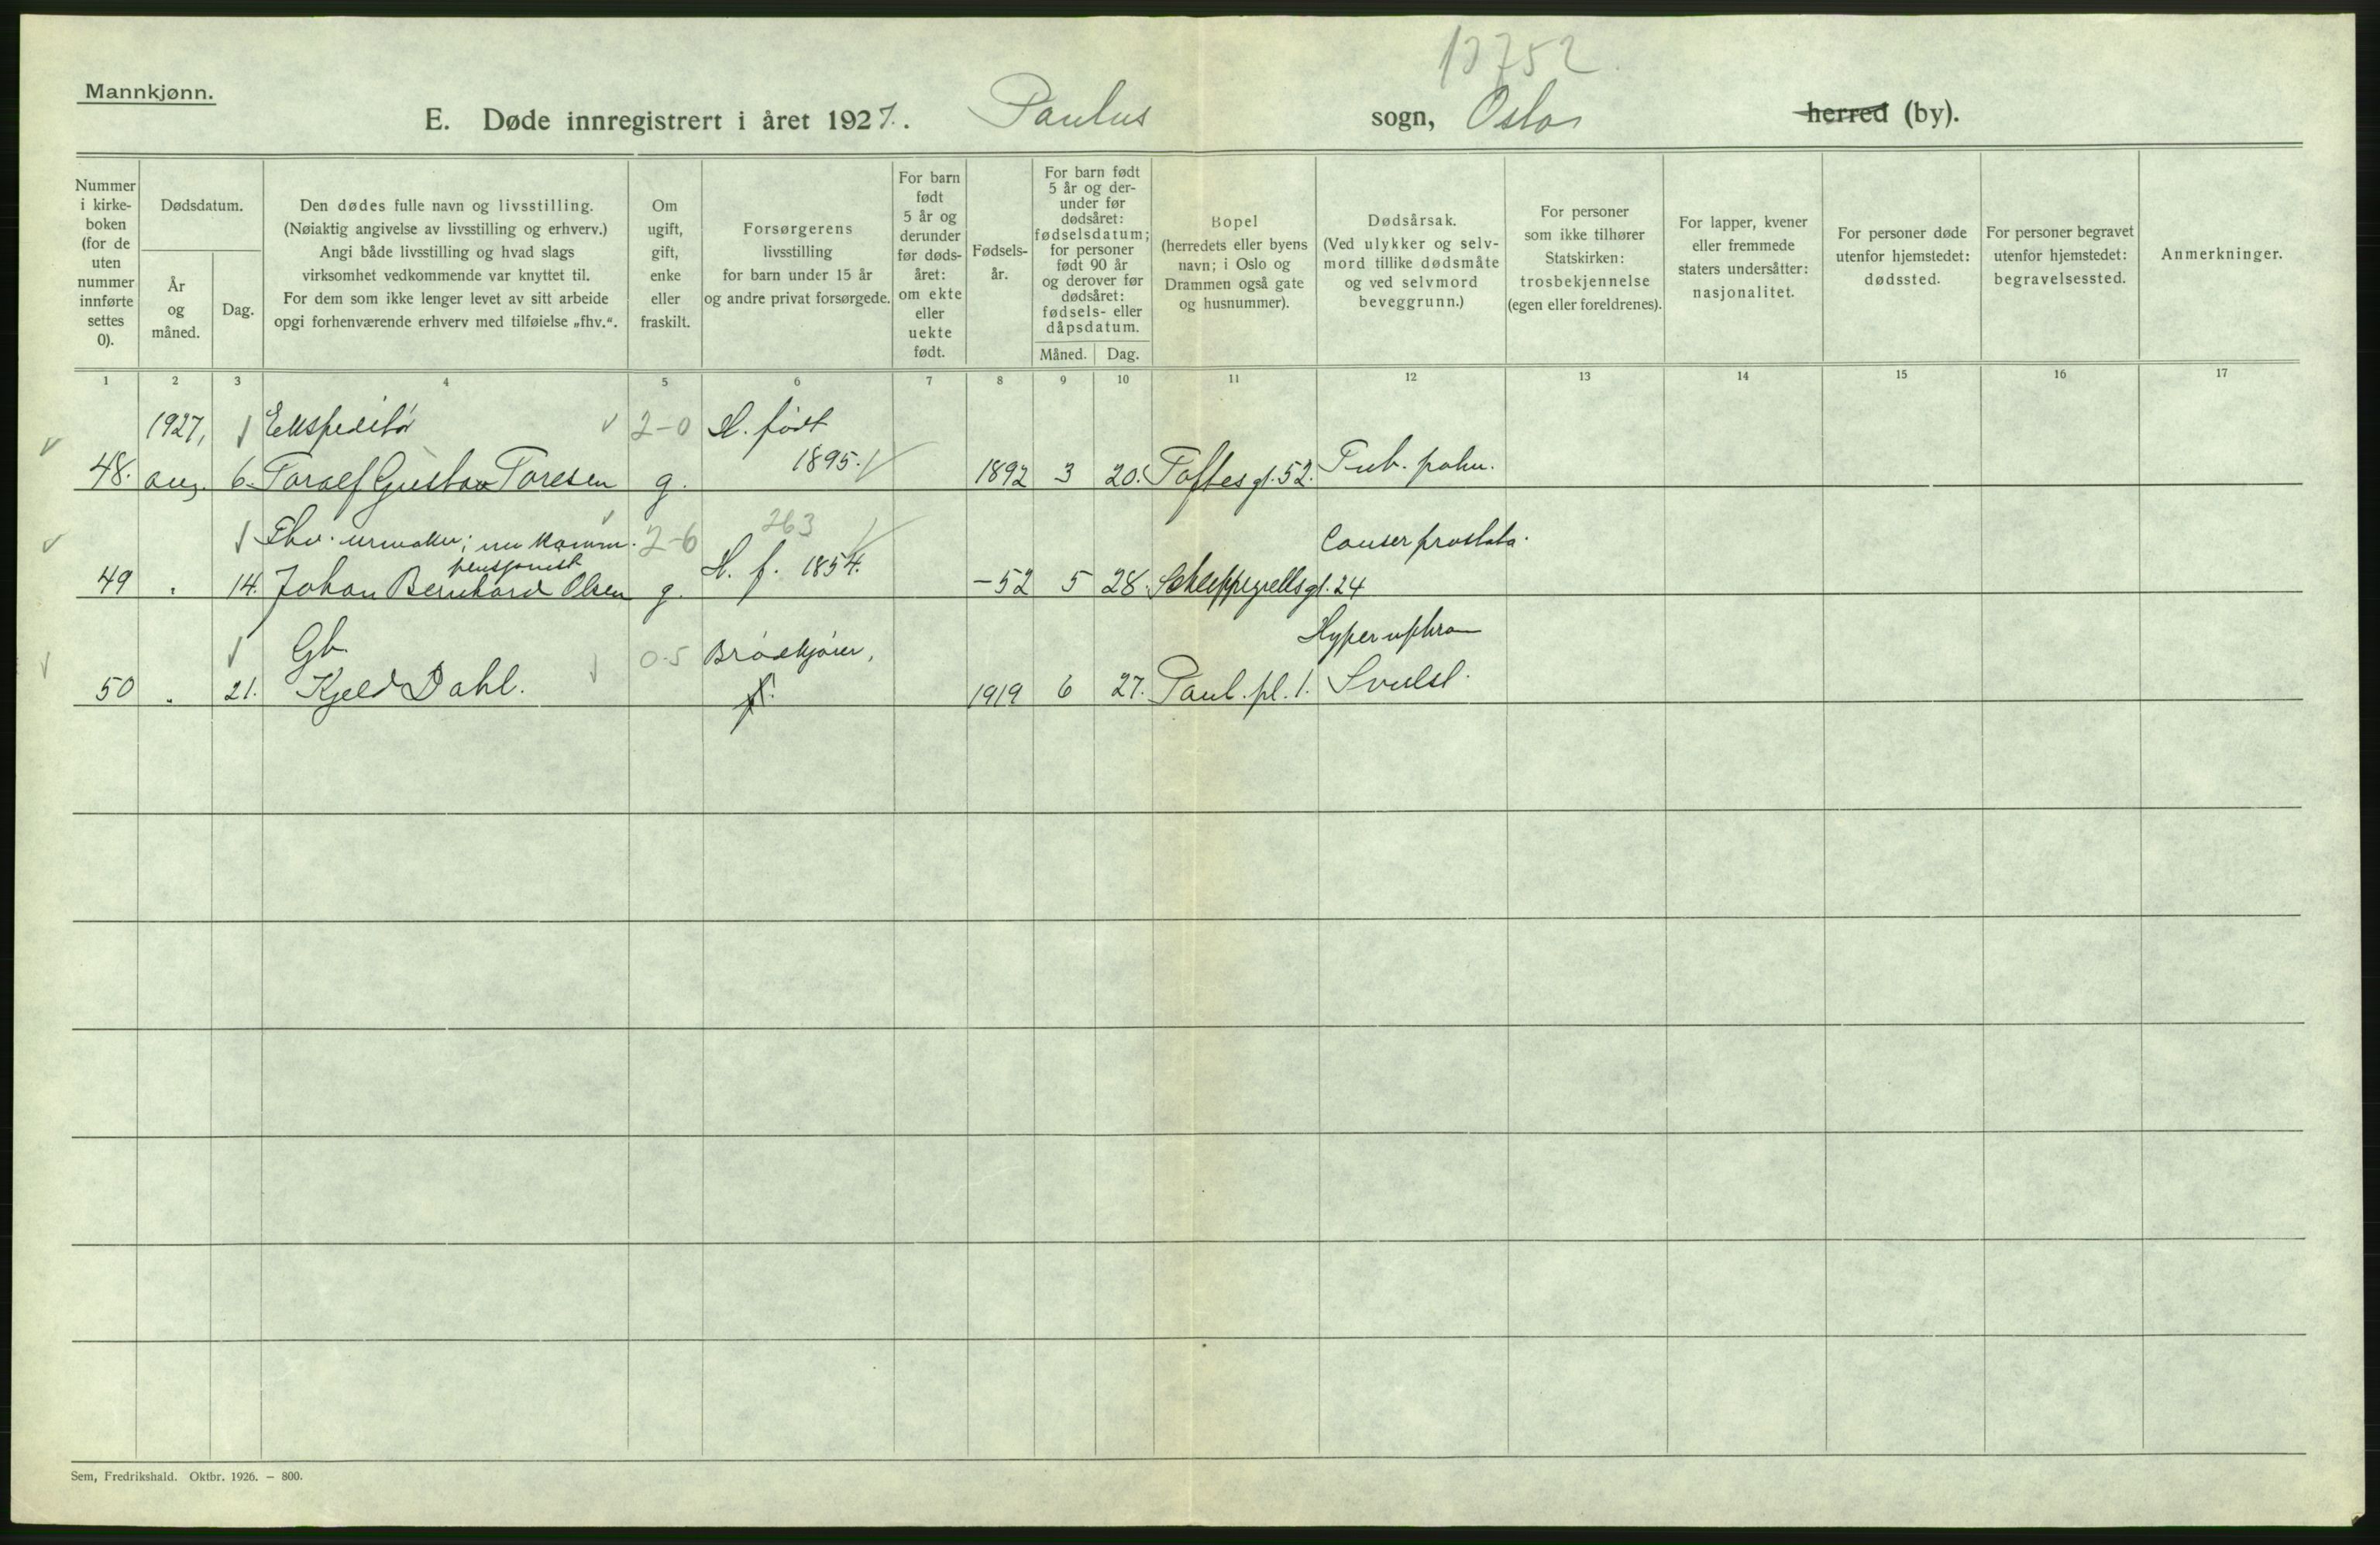 13752
Mannkjønn.
E. Døde innregistrert i året 1927. Paulus sogn, Oslo herred (by).
Nummer i kirkeboken (for de uten nummer innførte settes 0).
Dødsdatum.
År og måned.
Dag.
Den dødes fulle navn og livsstilling.
(Nøiaktig angivelse av livsstilling og erhverv.)
Angi både livsstilling og hvad slags
virksomhet vedkommende var knyttet til.
For dem som ikke lenger levet av sitt arbeide
opgi forhenværende erhverv med tilføielse „fhv.".
Om
ugift,
gift,
enke
eller
fraskilt.
Forsørgerens
livsstilling
for barn under 15 år
og andre privat forsørgede.
For barn
født
5 år og
derunder
før døds-
året:
om ekte
eller
uekte
født.
Fødsels-
år.
For barn født
5 år og der-
under før
dødsåret:
fødselsdatum;
for personer
født 90 år
og derover før
dødsåret:
fødsels- eller
dåpsdatum.
Måned. Dag.
Bopel
(herredets eller byens
navn; i Oslo og
Drammen også gate
og husnummer).
Dødsårsak.
(Ved ulykker og selv-
mord tillike dødsmåte
og ved selvmord
beveggrunn.)
For personer
som ikke tilhører
Statskirken:
trosbekjennelse
(egen eller foreldrenes).
For lapper, kvener
eller fremmede
staters undersåtter:
nasjonalitet.
For personer døde
utenfor hjemstedet:
dødssted.
For personer begravet
utenfor hjemstedet:
begravelsessted.
Anmerkninger.
1 2 3 4 5 6 7 8 9 10 11 12 13 14 15 16 17
1927, Ekspeditør 2-0 H. født
48. aug. 6. Toralf Gustav Toresen g. 1895. 1892 3 20. Toftes gt. 52. Tub. pulm.
Fhv. urmaker; nu komm. 2-6 263
pensjonist H. f. 1854. Cancer prostata.
49 " 14. Johan Bernhard Olsen g. -52 5 28. Schleppegrellsgt. 24
Gb. 0-5 Brødkjører, Hypernephrom
50 " 21. Kjeld Dahl. 1919 6 27. Paul. pl. 1. Svulst.
Sem, Fredrikshald. Oktbr. 1926. – 800.